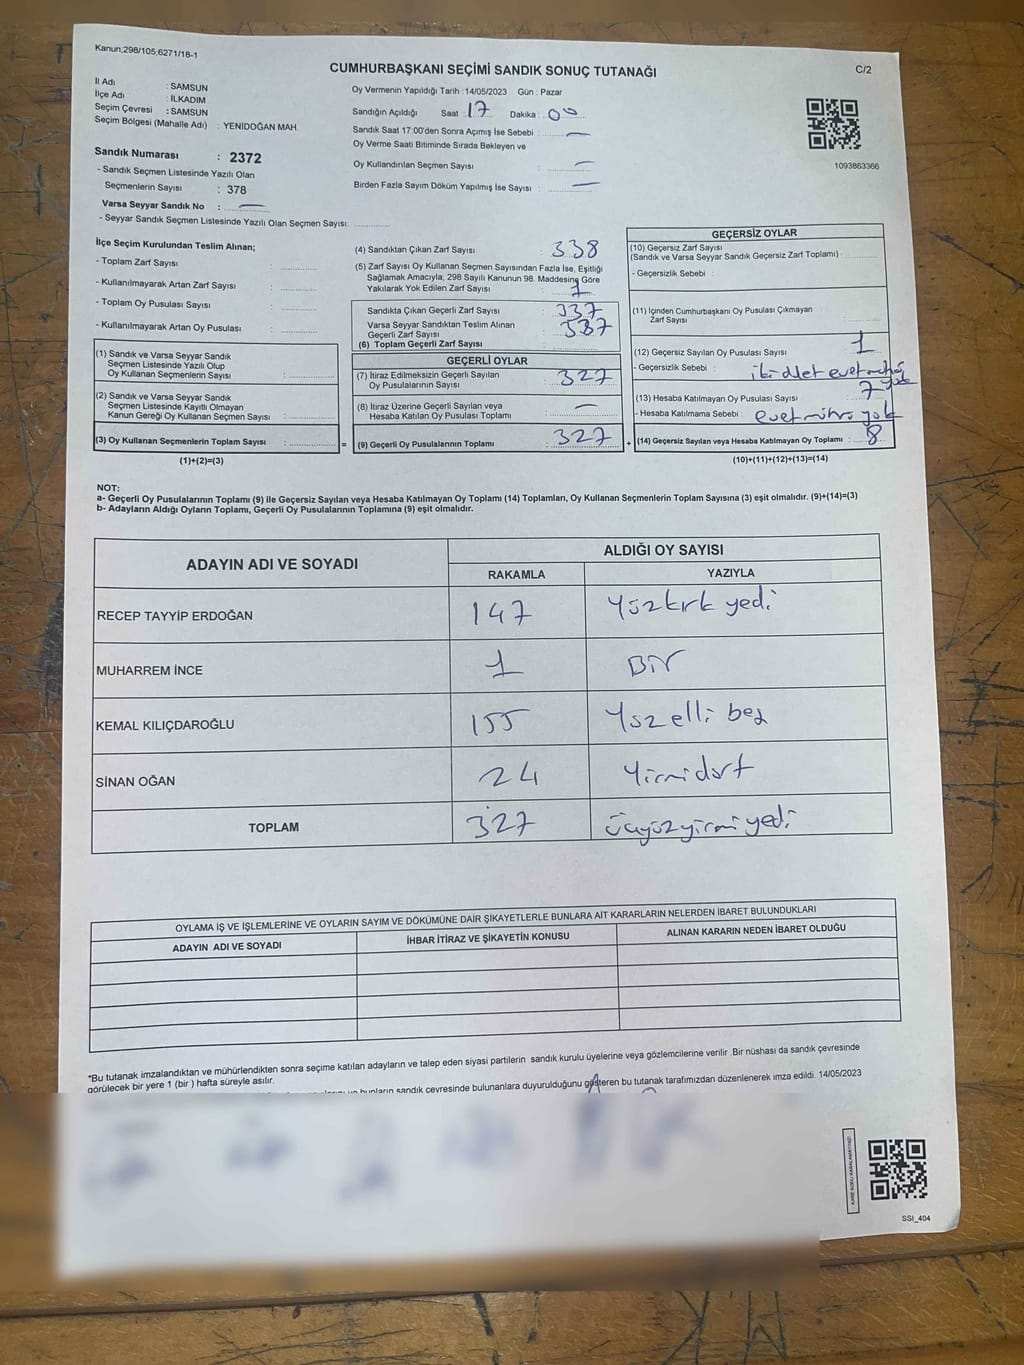 Kanun;298/105;6271/18-1
CUMHURBAŞKANI SEÇİMİ SANDIK SONUÇ TUTANAĞI
C/2
İl Adı : SAMSUN
İlçe Adı : İLKADIM
Seçim Çevresi : SAMSUN
Seçim Bölgesi (Mahalle Adı) : YENİDOĞAN MAH.
Sandık Numarası : 2372
- Sandık Seçmen Listesinde Yazılı Olan
Seçmenlerin Sayısı : 378
Varsa Seyyar Sandık No : —
- Seyyar Sandık Seçmen Listesinde Yazılı Olan Seçmen Sayısı:
Oy Vermenin Yapıldığı Tarih :14/05/2023 Gün : Pazar
Sandığın Açıldığı Saat : 17 Dakika : 00
Sandık Saat 17:00'den Sonra Açımış İse Sebebi : —
Oy Verme Saati Bitiminde Sırada Bekleyen ve
Oy Kullandırılan Seçmen Sayısı : —
Birden Fazla Sayım Döküm Yapılmış İse Sayısı : —
1093863366
İlçe Seçim Kurulundan Teslim Alınan;
- Toplam Zarf Sayısı :
- Kullanılmayarak Artan Zarf Sayısı :
- Toplam Oy Pusulası Sayısı :
- Kullanılmayarak Artan Oy Pusulası :
(1) Sandık ve Varsa Seyyar Sandık
Seçmen Listesinde Yazılı Olup
Oy Kullanan Seçmenlerin Sayısı :
(2) Sandık ve Varsa Seyyar Sandık
Seçmen Listesinde Kayıtlı Olmayan
Kanun Gereği Oy Kullanan Seçmen Sayısı :
(3) Oy Kullanan Seçmenlerin Toplam Sayısı : =
(1)+(2)=(3)
(4) Sandıktan Çıkan Zarf Sayısı : 338
(5) Zarf Sayısı Oy Kullanan Seçmen Sayısından Fazla İse, Eşitliği
Sağlamak Amacıyla, 298 Sayılı Kanunun 98. Maddesine Göre
Yakılarak Yok Edilen Zarf Sayısı : 1
Sandıkta Çıkan Geçerli Zarf Sayısı : 337
Varsa Seyyar Sandıktan Teslim Alınan
Geçerli Zarf Sayısı : 337
(6) Toplam Geçerli Zarf Sayısı
GEÇERLİ OYLAR
(7) İtiraz Edilmeksizin Geçerli Sayılan
Oy Pusulalarının Sayısı : 327
(8) İtiraz Üzerine Geçerli Sayılan veya
Hesaba Katılan Oy Pusulası Toplamı : —
(9) Geçerli Oy Pusulalarının Toplamı : 327 +
GEÇERSİZ OYLAR
(10) Geçersiz Zarf Sayısı
(Sandık ve Varsa Seyyar Sandık Geçersiz Zarf Toplamı) :
- Geçersizlik Sebebi :
(11) İçinden Cumhurbaşkanı Oy Pusulası Çıkmayan
Zarf Sayısı :
(12) Geçersiz Sayılan Oy Pusulası Sayısı : 1
- Geçersizlik Sebebi : iki adet evet mührü
(13) Hesaba Katılmayan Oy Pusulası Sayısı : 7
- Hesaba Katılmama Sebebi : evet mührü yok
(14) Geçersiz Sayılan veya Hesaba Katılmayan Oy Toplamı : 8
(10)+(11)+(12)+(13)=(14)
NOT:
a- Geçerli Oy Pusulalarının Toplamı (9) ile Geçersiz Sayılan veya Hesaba Katılmayan Oy Toplamı (14) Toplamları, Oy Kullanan Seçmenlerin Toplam Sayısına (3) eşit olmalıdır. (9)+(14)=(3)
b- Adayların Aldığı Oyların Toplamı, Geçerli Oy Pusulalarının Toplamına (9) eşit olmalıdır.
ADAYIN ADI VE SOYADI ALDIĞI OY SAYISI
RAKAMLA YAZIYLA
RECEP TAYYİP ERDOĞAN 147 Yüzkırk yedi
MUHARREM İNCE 1 Bir
KEMAL KILIÇDAROĞLU 155 Yüz elli beş
SİNAN OĞAN 24 Yirmi dört
TOPLAM 327 üçyüz yirmi yedi
OYLAMA İŞ VE İŞLEMLERİNE VE OYLARIN SAYIM VE DÖKÜMÜNE DAİR ŞİKAYETLERLE BUNLARA AİT KARARLARIN NELERDEN İBARET BULUNDUKLARI
ADAYIN ADI VE SOYADI İHBAR İTİRAZ VE ŞİKAYETİN KONUSU ALINAN KARARIN NEDEN İBARET OLDUĞU
*Bu tutanak imzalandıktan ve mühürlendikten sonra seçime katılan adayların ve talep eden siyasi partilerin sandık kurulu üyelerine veya gözlemcilerine verilir .Bir nüshası da sandık çevresinde
görülecek bir yere 1 (bir ) hafta süreyle asılır.
bunların sandık çevresinde bulunanlara duyurulduğunu gösteren bu tutanak tarafımızdan düzenlenerek imza edildi. 14/05/2023
SSI_404